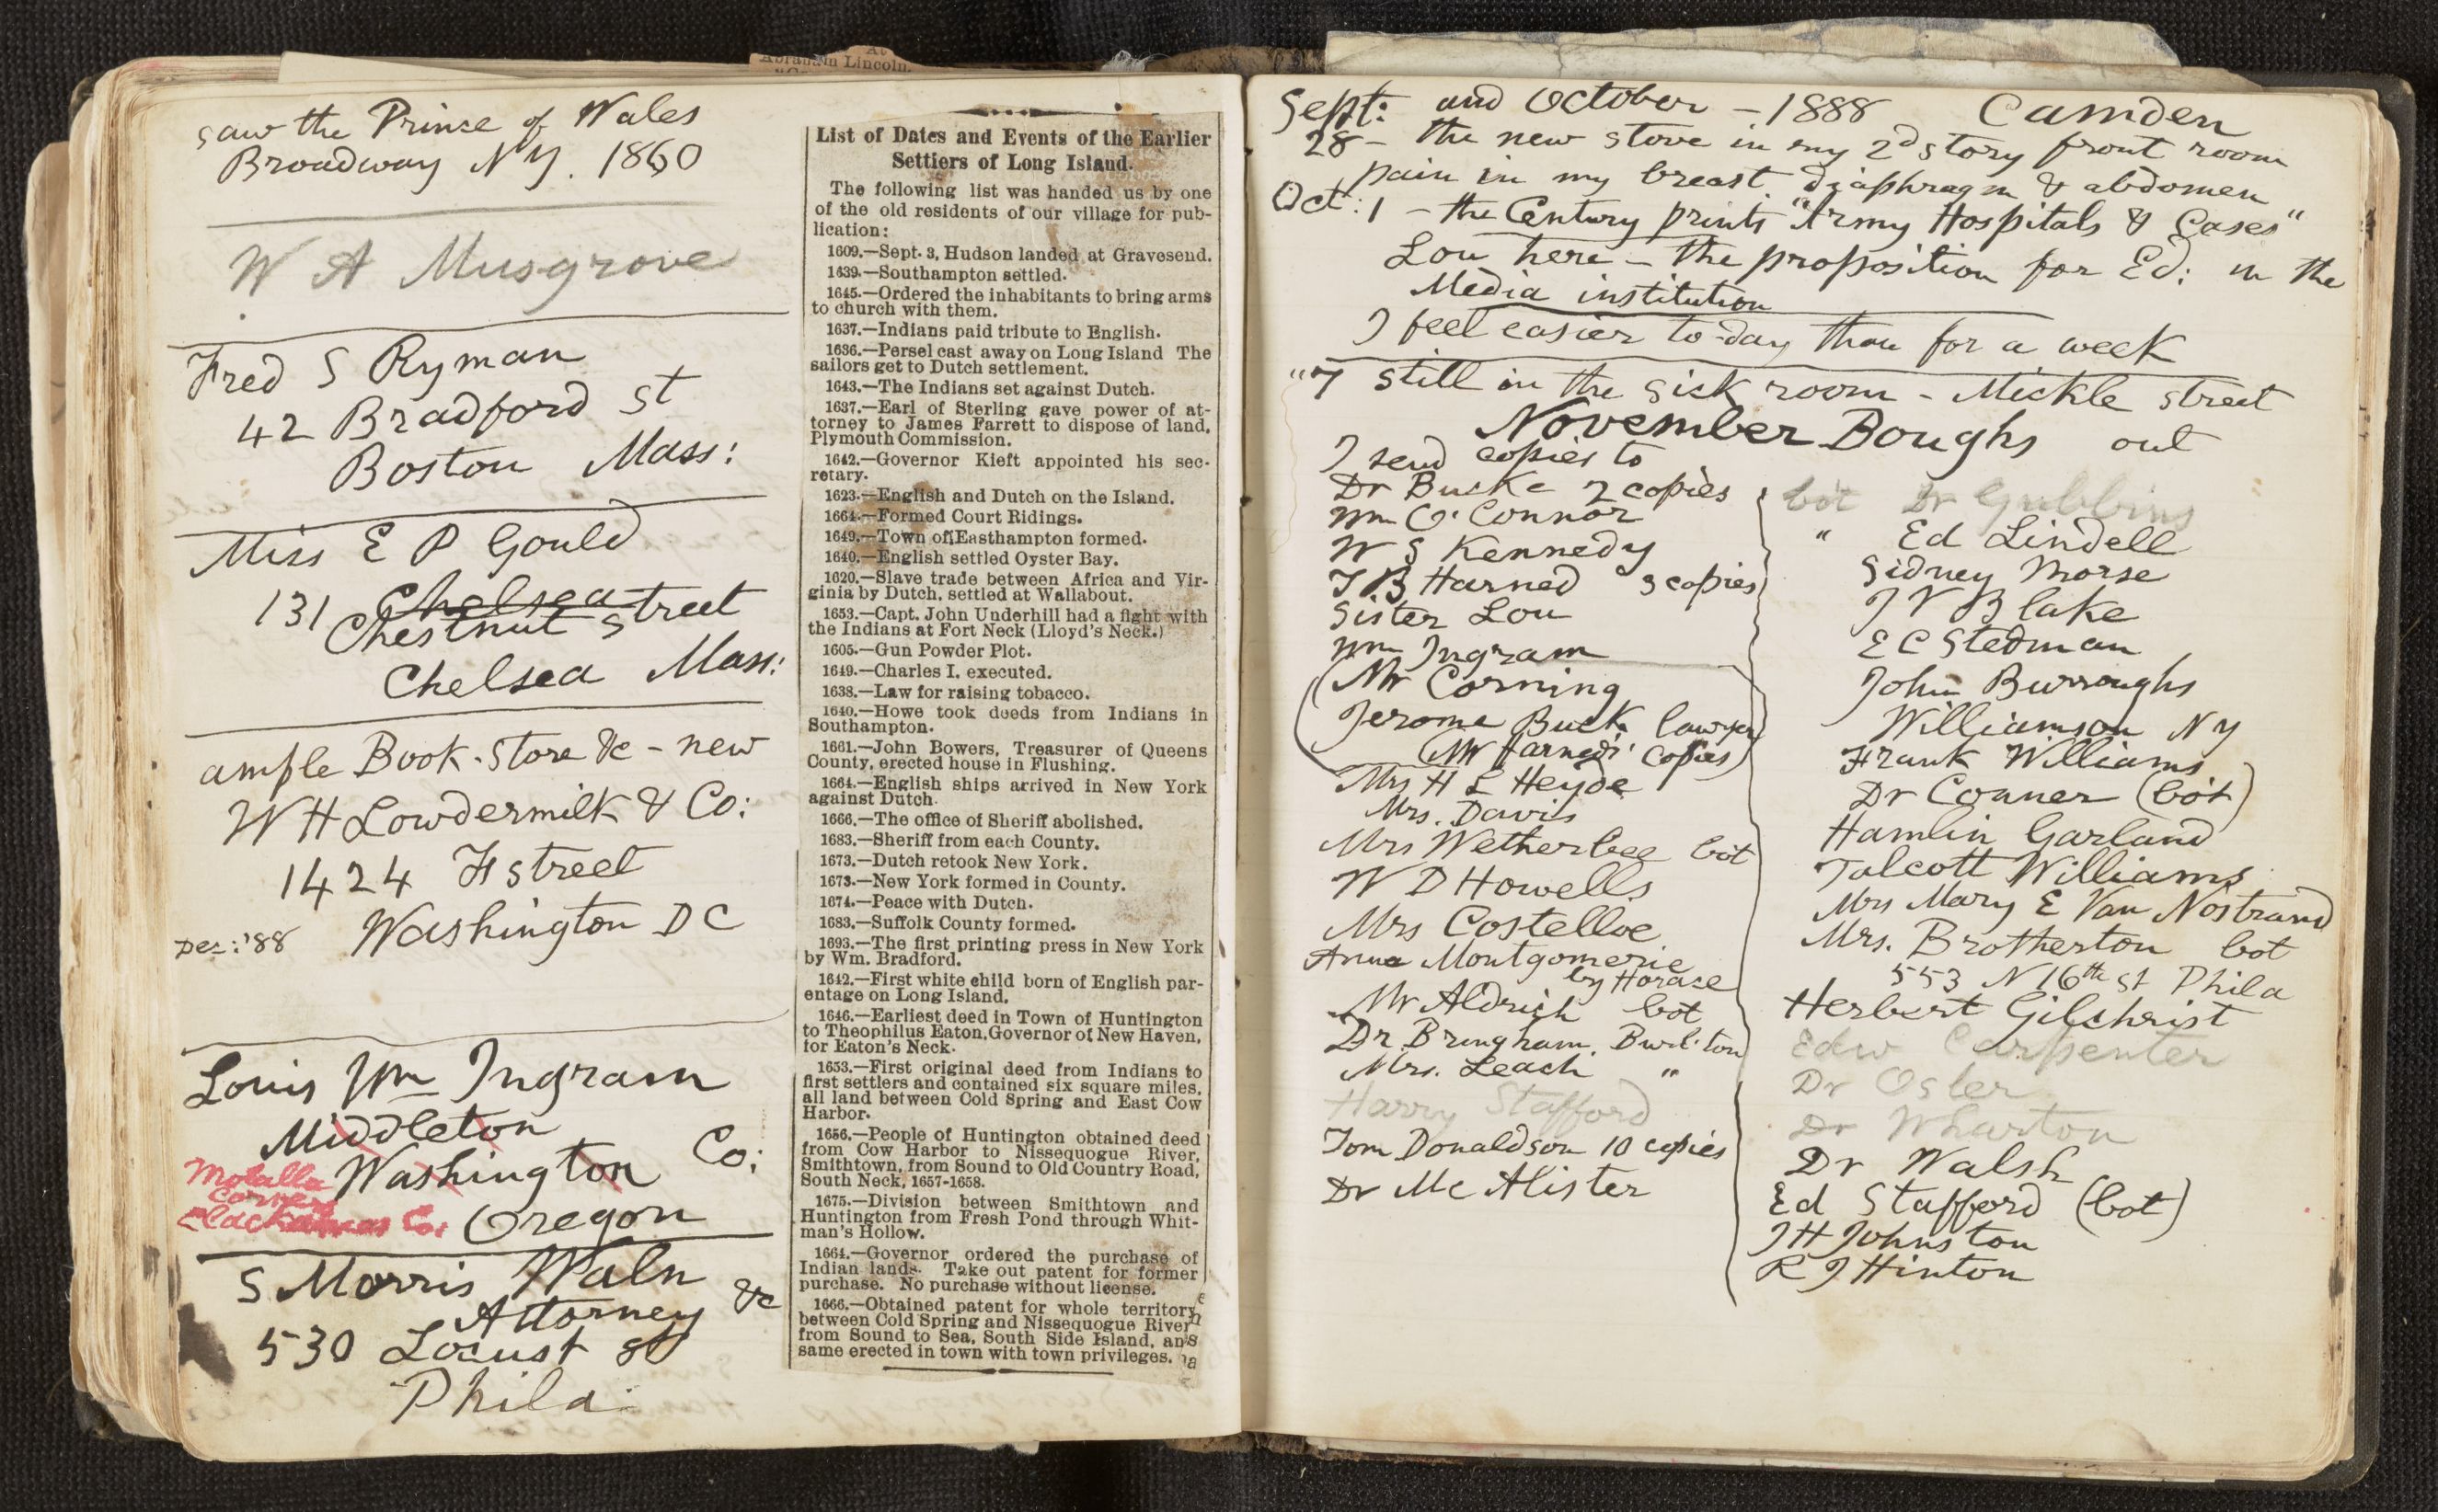 saw the Prince of Wales
Broadway N Y. 1860
W A Musgrove
Fred S Ryman
42 Bradford st
Boston Mass:
Miss E P Gould
131 Chelsea street
Chestnut
Chelsea Mass:
ample Book-Store &c - new
W H Lowdermilk & Co:
1424 F street
Dec: '88 Washington D C
Louis Wm Ingram
Middleton
Washington Co:
Molalla
Corners
Clackamas Co. Oregon
S Morris Waln
Attorney &c
530 Locust st
Phila:
At
Abraham Lincoln.
List of Dates and Events of the Earlier
Settlers of Long Island.
The following list was handed us by one
of the old residents of our village for pub-
lication:
1609.—Sept. 3, Hudson landed at Gravesend.
1639.—Southampton settled.
1645.—Ordered the inhabitants to bring arms
to church with them.
1637.—Indians paid tribute to English.
1636.—Persel cast away on Long Island The
sailors get to Dutch settlement.
1643.—The Indians set against Dutch.
1637.—Earl of Sterling gave power of at-
torney to James Farrett to dispose of land,
Plymouth Commission.
1642.—Governor Kieft appointed his sec-
retary.
1623.—English and Dutch on the Island.
1664.—Formed Court Ridings.
1649.—Town of Easthampton formed.
1640.—English settled Oyster Bay.
1620.—Slave trade between Africa and Vir-
ginia by Dutch, settled at Wallabout.
1653.—Capt. John Underhill had a fight with
the Indians at Fort Neck (Lloyd's Neck.)
1605.—Gun Powder Plot.
1649.—Charles I. executed.
1638.—Law for raising tobacco.
1640.—Howe took deeds from Indians in
Southampton.
1661.—John Bowers, Treasurer of Queens
County, erected house in Flushing.
1664.—English ships arrived in New York
against Dutch.
1666.—The office of Sheriff abolished.
1683.—Sheriff from each County.
1673.—Dutch retook New York.
1673.—New York formed in County.
1674.—Peace with Dutch.
1683.—Suffolk County formed.
1693.—The first printing press in New York
by Wm. Bradford.
1642.—First white child born of English par-
entage on Long Island.
1646.—Earliest deed in Town of Huntington
to Theophilus Eaton, Governor of New Haven,
for Eaton's Neck.
1653.—First original deed from Indians to
first settlers and contained six square miles,
all land between Cold Spring and East Cow
Harbor.
1656.—People of Huntington obtained deed
from Cow Harbor to Nissequogue River,
Smithtown, from Sound to Old Country Road,
South Neck, 1657-1658.
1675.—Division between Smithtown and
Huntington from Fresh Pond through Whit-
man's Hollow.
1664.—Governor ordered the purchase of
Indian lands. Take out patent for former
purchase. No purchase without license.
1666.—Obtained patent for whole territory
between Cold Spring and Nissequogue River
from Sound to Sea, South Side Island, an
same erected in town with town privileges.
Sept: and October - 1888 Camden
28 - the new stove in my 2d story front room
pain in my breast, diaphragm & abdomen
Oct: 1 - the Century prints "Army Hospitals & Cases"
Lou here - the proposition for Ed: in the
Media institution
I feel easier to-day than for a week
" 7 still in the sick room - Mickle street
November Boughs out
I send copies to
Dr Bucke 2 copies
Wm O'Connor
W S Kennedy
T B Harned 3 copies
Sister Lou
Wm Ingram
(Mr Corning
Jerome Buck lawyer
(Mr Harned's copies)
Mrs H L Heyde
Mrs. Davis
Mrs Wetherbee bot
W D Howells
Mrs Costelloe
Anne Montgomerie
by Horace
Mr Aldrich bot
Dr Bringham, Burl:ton
Mrs. Leach "
Harry Stafford
Tom Donaldson 10 copies
Dr Mc Alister
bot Dr Gubbins
" Ed Lindell
Sidney Morse
J V Blake
E C Stedman
John Burroughs
Williamson N Y
Frank Williams
Dr Conner (bot)
Hamlin Garland
Talcott Williams
Mrs Mary E Van Nostrand
Mrs. Brotherton bot
553 N 16th st Phila
Herbert Gilchrist
Edw Carpenter
Dr Osler
Dr Wharton
Dr Walsh
Ed Stafford (bot)
J H Johnston
R J Hinton